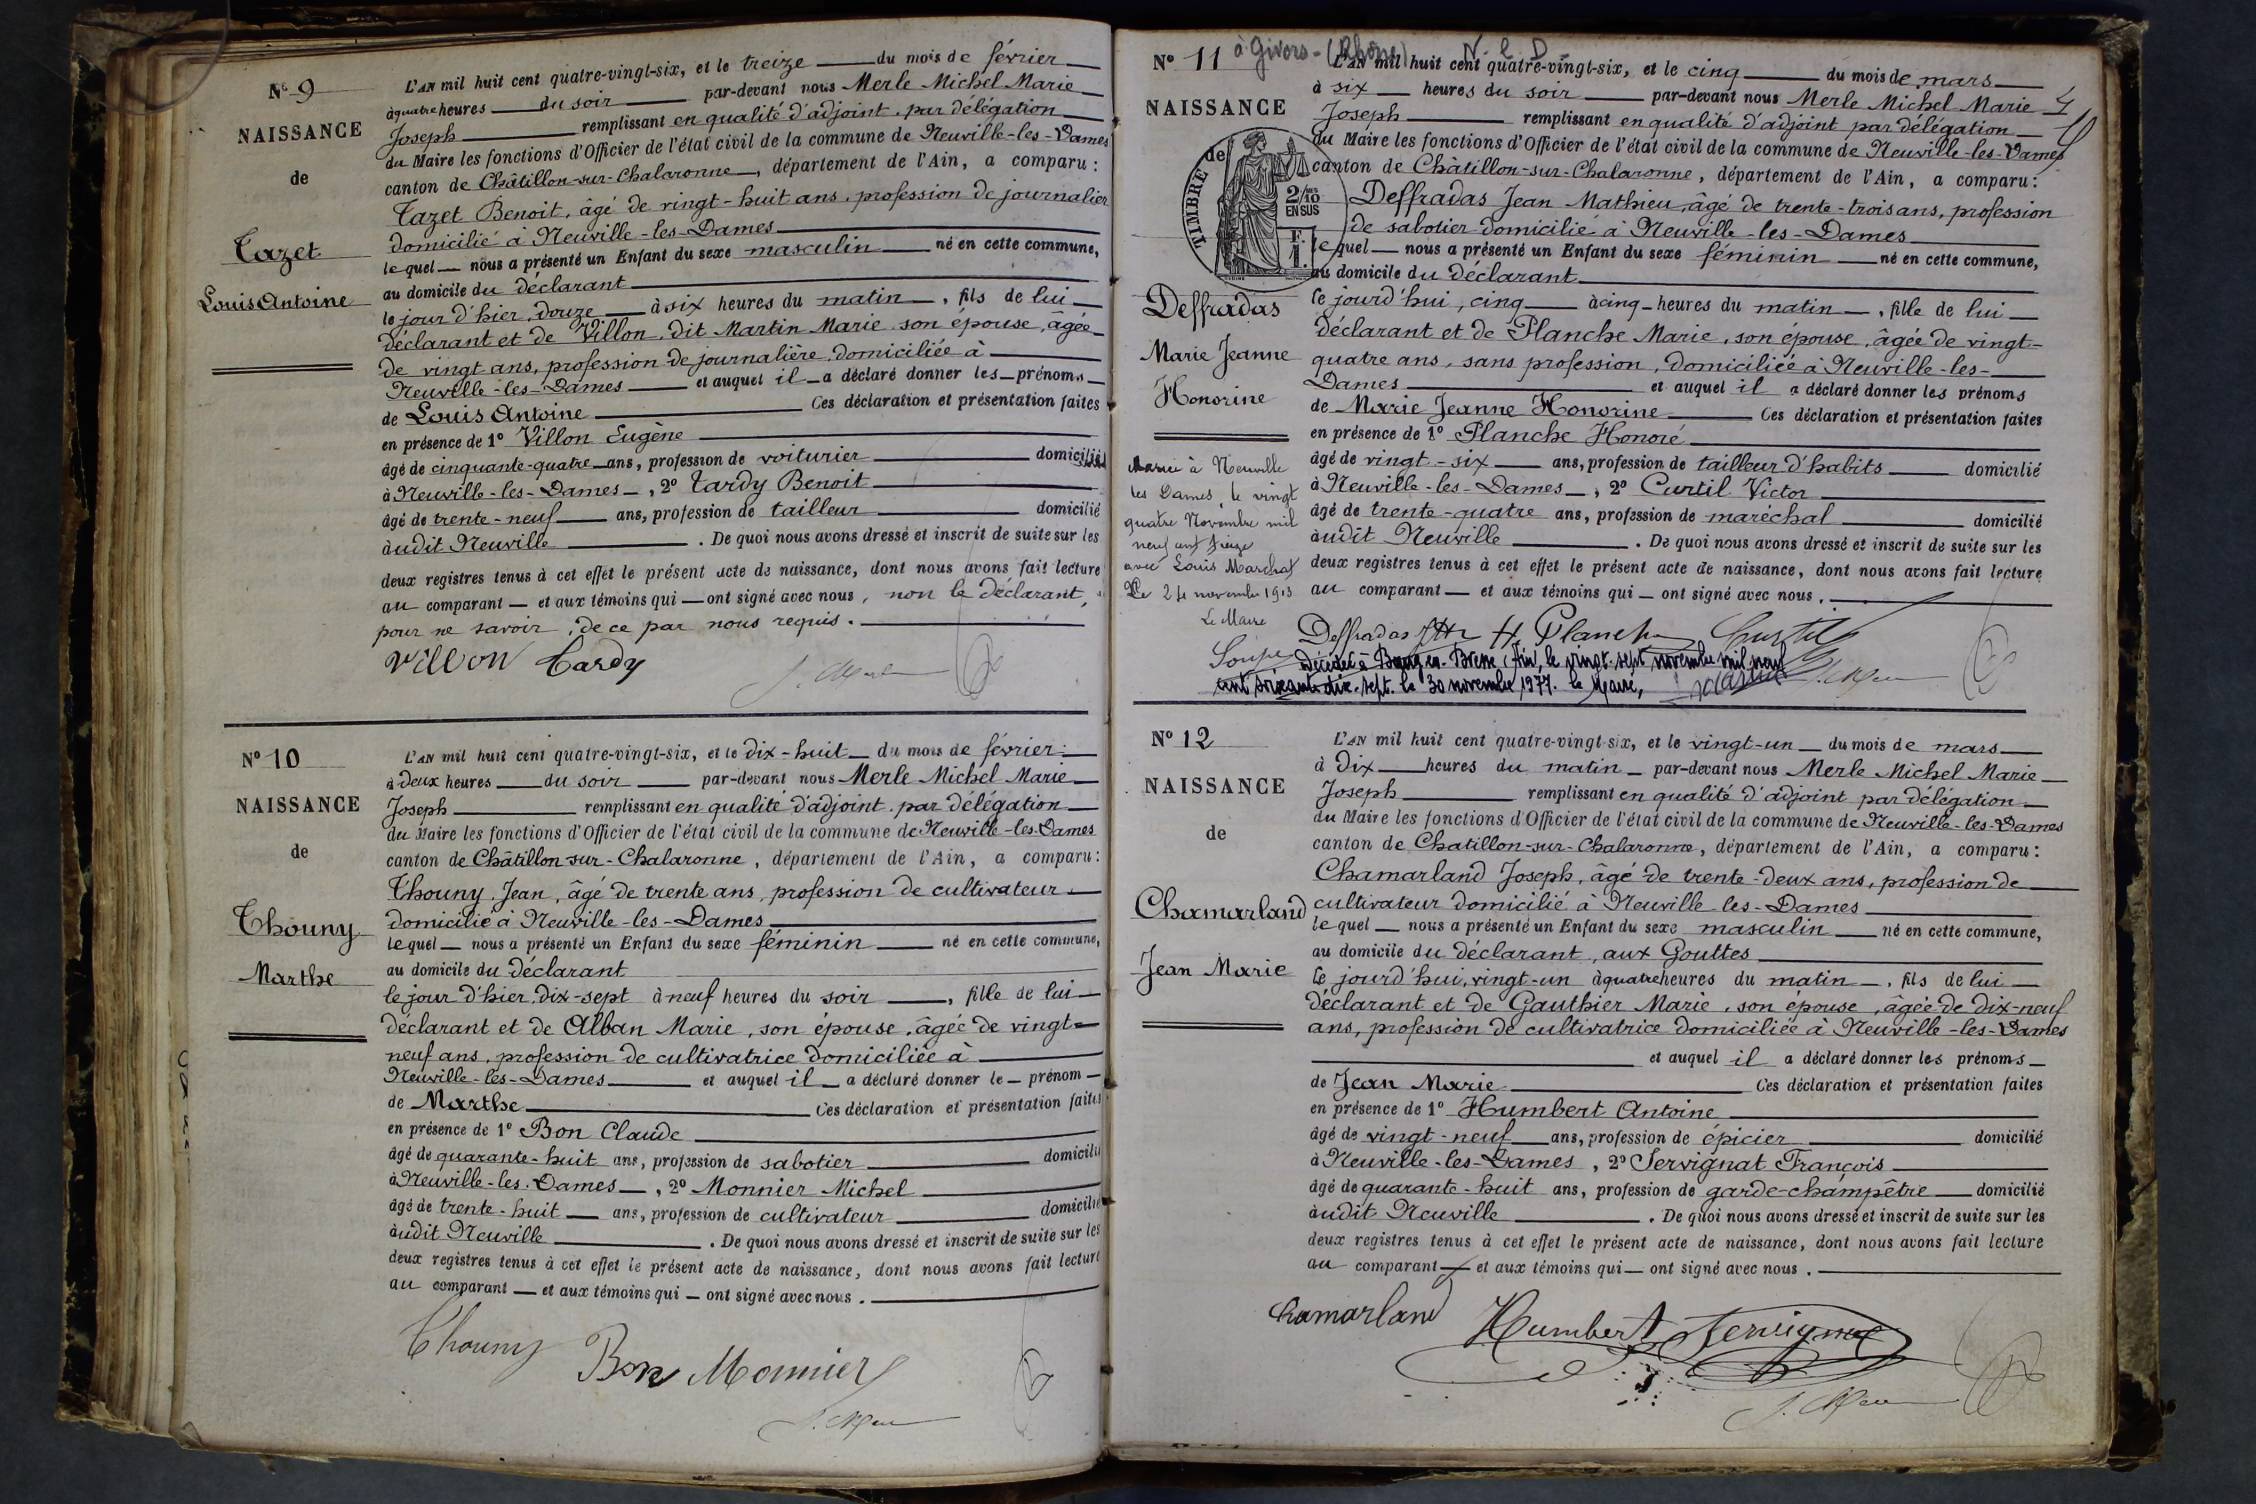 Nº 9
NAISSANCE
de
Tazet
Louis Antoine
L'AN mil huit cent quatre-vingt-six, et le treize du mois de février
à quatre heures du soir par-devant nous Merle Michel Marie
Joseph remplissant en qualité d'adjoint, par délégation
du Maire les fonctions d'Officier de l'état civil de la commune de Neuville-les-Dames
canton de Châtillon-sur-Chalaronne, département de l'Ain, a comparu :
Tazet Benoit, âgé de vingt-huit ans, profession de journalier
domicilié à Neuville-les-Dames
lequel nous a présenté un Enfant du sexe masculin né en cette commune,
au domicile du déclarant
le jour d'hier, douze à six heures du matin, fils de lui
déclarant et de Villon, dit Martin Marie son épouse, âgée
de vingt ans, profession de journalière, domiciliée à
Neuville-les-Dames et auquel il a déclaré donner les prénoms
de Louis Antoine Ces déclaration et présentation faites
en présence de 1º Villon Eugène
âgé de cinquante-quatre ans, profession de voiturier domicilié
à Neuville-les-Dames, 2º Tardy Benoit
âgé de trente-neuf ans, profession de tailleur domicilié
àudit Neuville . De quoi nous avons dressé et inscrit de suite sur les
deux registres tenus à cet effet le présent acte de naissance, dont nous avons fait lecture
au comparant et aux témoins qui ont signé avec nous, non le déclarant,
pour ne savoir, de ce par nous requis.
Villon Tardy
Nº 10
NAISSANCE
de
Thouny
Marthe
L'AN mil huit cent quatre-vingt-six, et le dix-huit du mois de février
à deux heures du soir par-devant nous Merle Michel Marie
Joseph remplissant en qualité d'adjoint, par délégation
du Maire les fonctions d'Officier de l'état civil de la commune de Neuville-les-Dames
canton de Châtillon-sur-Chalaronne, département de l'Ain, a comparu :
Thouny Jean, âgé de trente ans, profession de cultivateur
domicilié à Neuville-les-Dames
lequel nous a présenté un Enfant du sexe féminin né en cette commune,
au domicile du déclarant
le jour d'hier, dix-sept à neuf heures du soir, fille de lui
déclarant et de Alban Marie, son épouse, âgée de vingt-
neuf ans, profession de cultivatrice domiciliée à
Neuville-les-Dames et auquel il a déclaré donner le prénom
de Marthe Ces déclaration et présentation faites
en présence de 1º Bon Claude
âgé de quarante-huit ans, profession de sabotier domicilié
à Neuville-les-Dames, 2º Monnier Michel
âgé de trente-huit ans, profession de cultivateur domicilié
àudit Neuville . De quoi nous avons dressé et inscrit de suite sur les
deux registres tenus à cet effet le présent acte de naissance, dont nous avons fait lecture
au comparant et aux témoins qui ont signé avec nous.
Thouny Bon Monnier
Nº 11 à Givors - (Rhône) N. l. D -
NAISSANCE
de
TIMBRE 2/10 EN SUS
Deffradas
Marie Jeanne
Honorine
Mariée à Neuville
les Dames, le vingt
quatre Novembre mil
neuf cent treize
avec Louis Marchat
Le 24 novembre 1913
Le Maire
L'AN mil huit cent quatre-vingt-six, et le cinq du mois de mars
à six heures du soir par-devant nous Merle Michel Marie
Joseph remplissant en qualité d'adjoint par délégation
du Maire les fonctions d'Officier de l'état civil de la commune de Neuville-les-Dames
canton de Châtillon-sur-Chalaronne, département de l'Ain, a comparu :
Deffradas Jean Mathieu, âgé de trente-trois ans, profession
de sabotier domicilié à Neuville-les-Dames
lequel nous a présenté un Enfant du sexe féminin né en cette commune,
au domicile du déclarant
ce jourd'hui, cinq à cinq heures du matin, fille de lui
déclarant et de Planche Marie, son épouse, âgée de vingt-
quatre ans, sans profession, domiciliée à Neuville-les-
Dames et auquel il a déclaré donner les prénoms
de Marie Jeanne Honorine Ces déclaration et présentation faites
en présence de 1º Planche Honoré
âgé de vingt-six ans, profession de tailleur d'habits domicilié
à Neuville-les-Dames, 2º Curtil Victor
âgé de trente-quatre ans, profession de maréchal domicilié
àudit Neuville . De quoi nous avons dressé et inscrit de suite sur les
deux registres tenus à cet effet le présent acte de naissance, dont nous avons fait lecture
au comparant et aux témoins qui ont signé avec nous.
Deffradas H. Planche Curtil
Décédée à Bourg-en-Bresse (Ain), le vingt-sept novembre mil neuf
cent soixante-dix-sept. le 30 novembre 1977. le Maire,
Nº 12
NAISSANCE
de
Chamarland
Jean Marie
L'AN mil huit cent quatre-vingt-six, et le vingt-un du mois de mars
à dix heures du matin par-devant nous Merle Michel Marie
Joseph remplissant en qualité d'adjoint par délégation
du Maire les fonctions d'Officier de l'état civil de la commune de Neuville-les-Dames
canton de Chatillon-sur-Chalaronne, département de l'Ain, a comparu :
Chamarland Joseph, âgé de trente-deux ans, profession de
cultivateur domicilié à Neuville les-Dames
lequel nous a présenté un Enfant du sexe masculin né en cette commune,
au domicile du déclarant, aux Gouttes
ce jourd'hui, vingt-un à quatre heures du matin, fils de lui
déclarant et de Gauthier Marie, son épouse, âgée de dix-neuf
ans, profession de cultivatrice domiciliée à Neuville-les-Dames
et auquel il a déclaré donner les prénoms
de Jean Marie Ces déclaration et présentation faites
en présence de 1º Humbert Antoine
âgé de vingt-neuf ans, profession de épicier domicilié
à Neuville-les-Dames, 2º Servignat François
âgé de quarante-huit ans, profession de garde-champêtre domicilié
àudit Neuville . De quoi nous avons dressé et inscrit de suite sur les
deux registres tenus à cet effet le présent acte de naissance, dont nous avons fait lecture
au comparant et aux témoins qui ont signé avec nous.
Chamarland Humbert Servignat